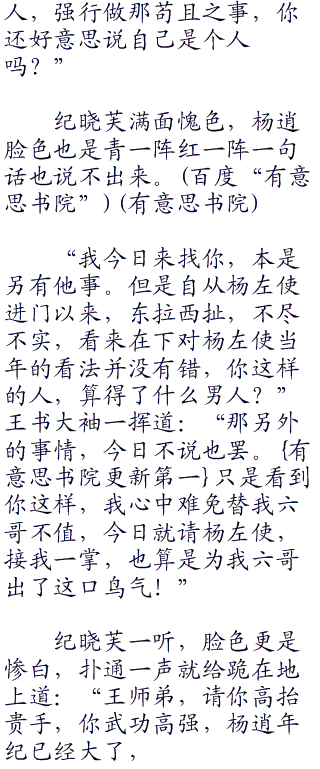 人，强行做那苟且之事，你
还好意思说自己是个人
吗？”
纪晓芙满面愧色，杨逍
脸色也是青一阵红一阵一句
话也说不出来。(百度“有意
思书院”)(有意思书院)
“我今日来找你，本是
另有他事。但是自从杨左使
进门以来，东拉西扯，不尽
不实，看来在下对杨左使当
年的看法并没有错，你这样
的人，算得了什么男人？”
王书大袖一挥道：“那另外
的事情，今日不说也罢。{有
意思书院更新第一}只是看到
你这样，我心中难免替我六
哥不值，今日就请杨左使，
接我一掌，也算是为我六哥
出了这口鸟气！”
纪晓芙一听，脸色更是
惨白，扑通一声就给跪在地
上道：“王师弟，请你高抬
贵手，你武功高强，杨逍年
纪已经大了，